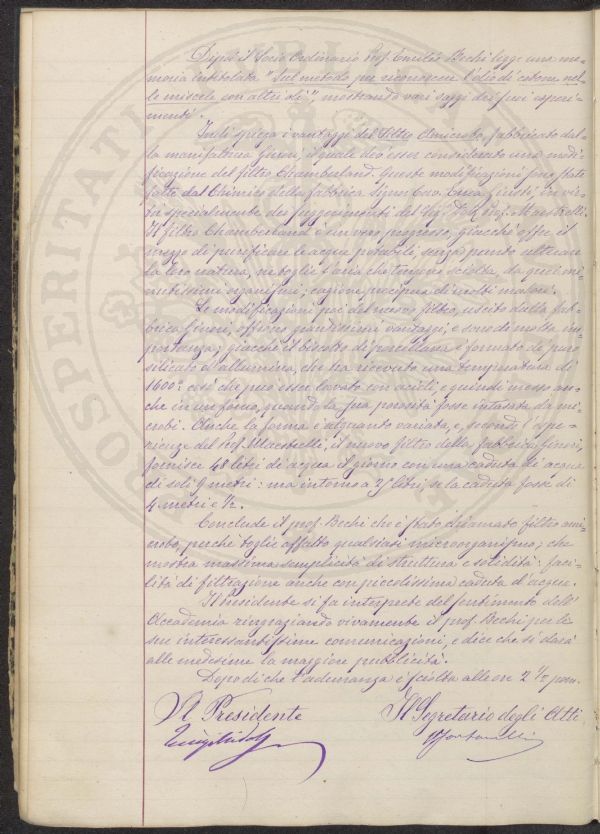 Dopo il Socio Ordinario Prof. Emilio Bechi legge una me-
moria intitolata "Sul metodo per riconoscere l'olio di cotone nel-
le miscele con altri olî", mostrando vari saggi dei suoi esperi-
menti.
Indi spiega i vantaggi del Filtro Amicrobo, fabbricato dal-
la manifattura Ginori, il quale dev'esser considerato una modi-
ficazione del filtro Chamberland. Queste modificazioni sono state
fatte dal Chimico della fabbrica Signor Cav. Giusto, in vir-
tù specialmente dei suggerimenti del Sig. Dott. Prof. Maestrelli.
Il filtro Chamberland è un vero progresso, giacchè offre il
mezzo di purificare le acque potabili, senza punto alterare
la loro natura, nè toglie l'aria che tengono sciolta, da quei mi-
nutissimi organismi, cagione precipua di molti malori.
Le modificazioni poi del nuovo filtro, uscito dalla fab-
brica Ginori, offrono grandissimi vantaggi, e sono di molta im-
portanza; giacchè il biscotto di porcellana è formato di puro
silicato d'allumina, che ha ricevuto una temperatura di
1600°. così che può esser lavato con acidi, e quindi messo an-
che in un forno, quando la sua porosità fosse intasata da mi-
crobi. Anche la forma è alquanto variata, e, secondo l'espe-
rienze del Prof. Maestrelli, il nuovo filtro della fabbrica Ginori,
fornisce 48 litri di acqua il giorno con una caduta di acqua
di soli 9 metri: ma intorno a 2 litri, se la caduta fosse di
4 metri e ½.
Conclude il prof. Bechi che è stato chiamato filtro ami-
crobo, perchè toglie affatto qualsiasi microorganismo; che
mostra massima semplicità di struttura e solidità: faci-
lità di filtrazione anche con piccolissima caduta d'acqua.
Il Presidente si fa interprete del sentimento dell'
Accademia ringraziando vivamente il prof. Bechi per le
sue interessantissime comunicazioni, e dice che si darà
alle medesime la maggiore pubblicità.
Dopo di che l'adunanza è sciolta alle ore 2 ½ pom.
Il Presidente Il Segretario degli Atti
PROSPERITATI